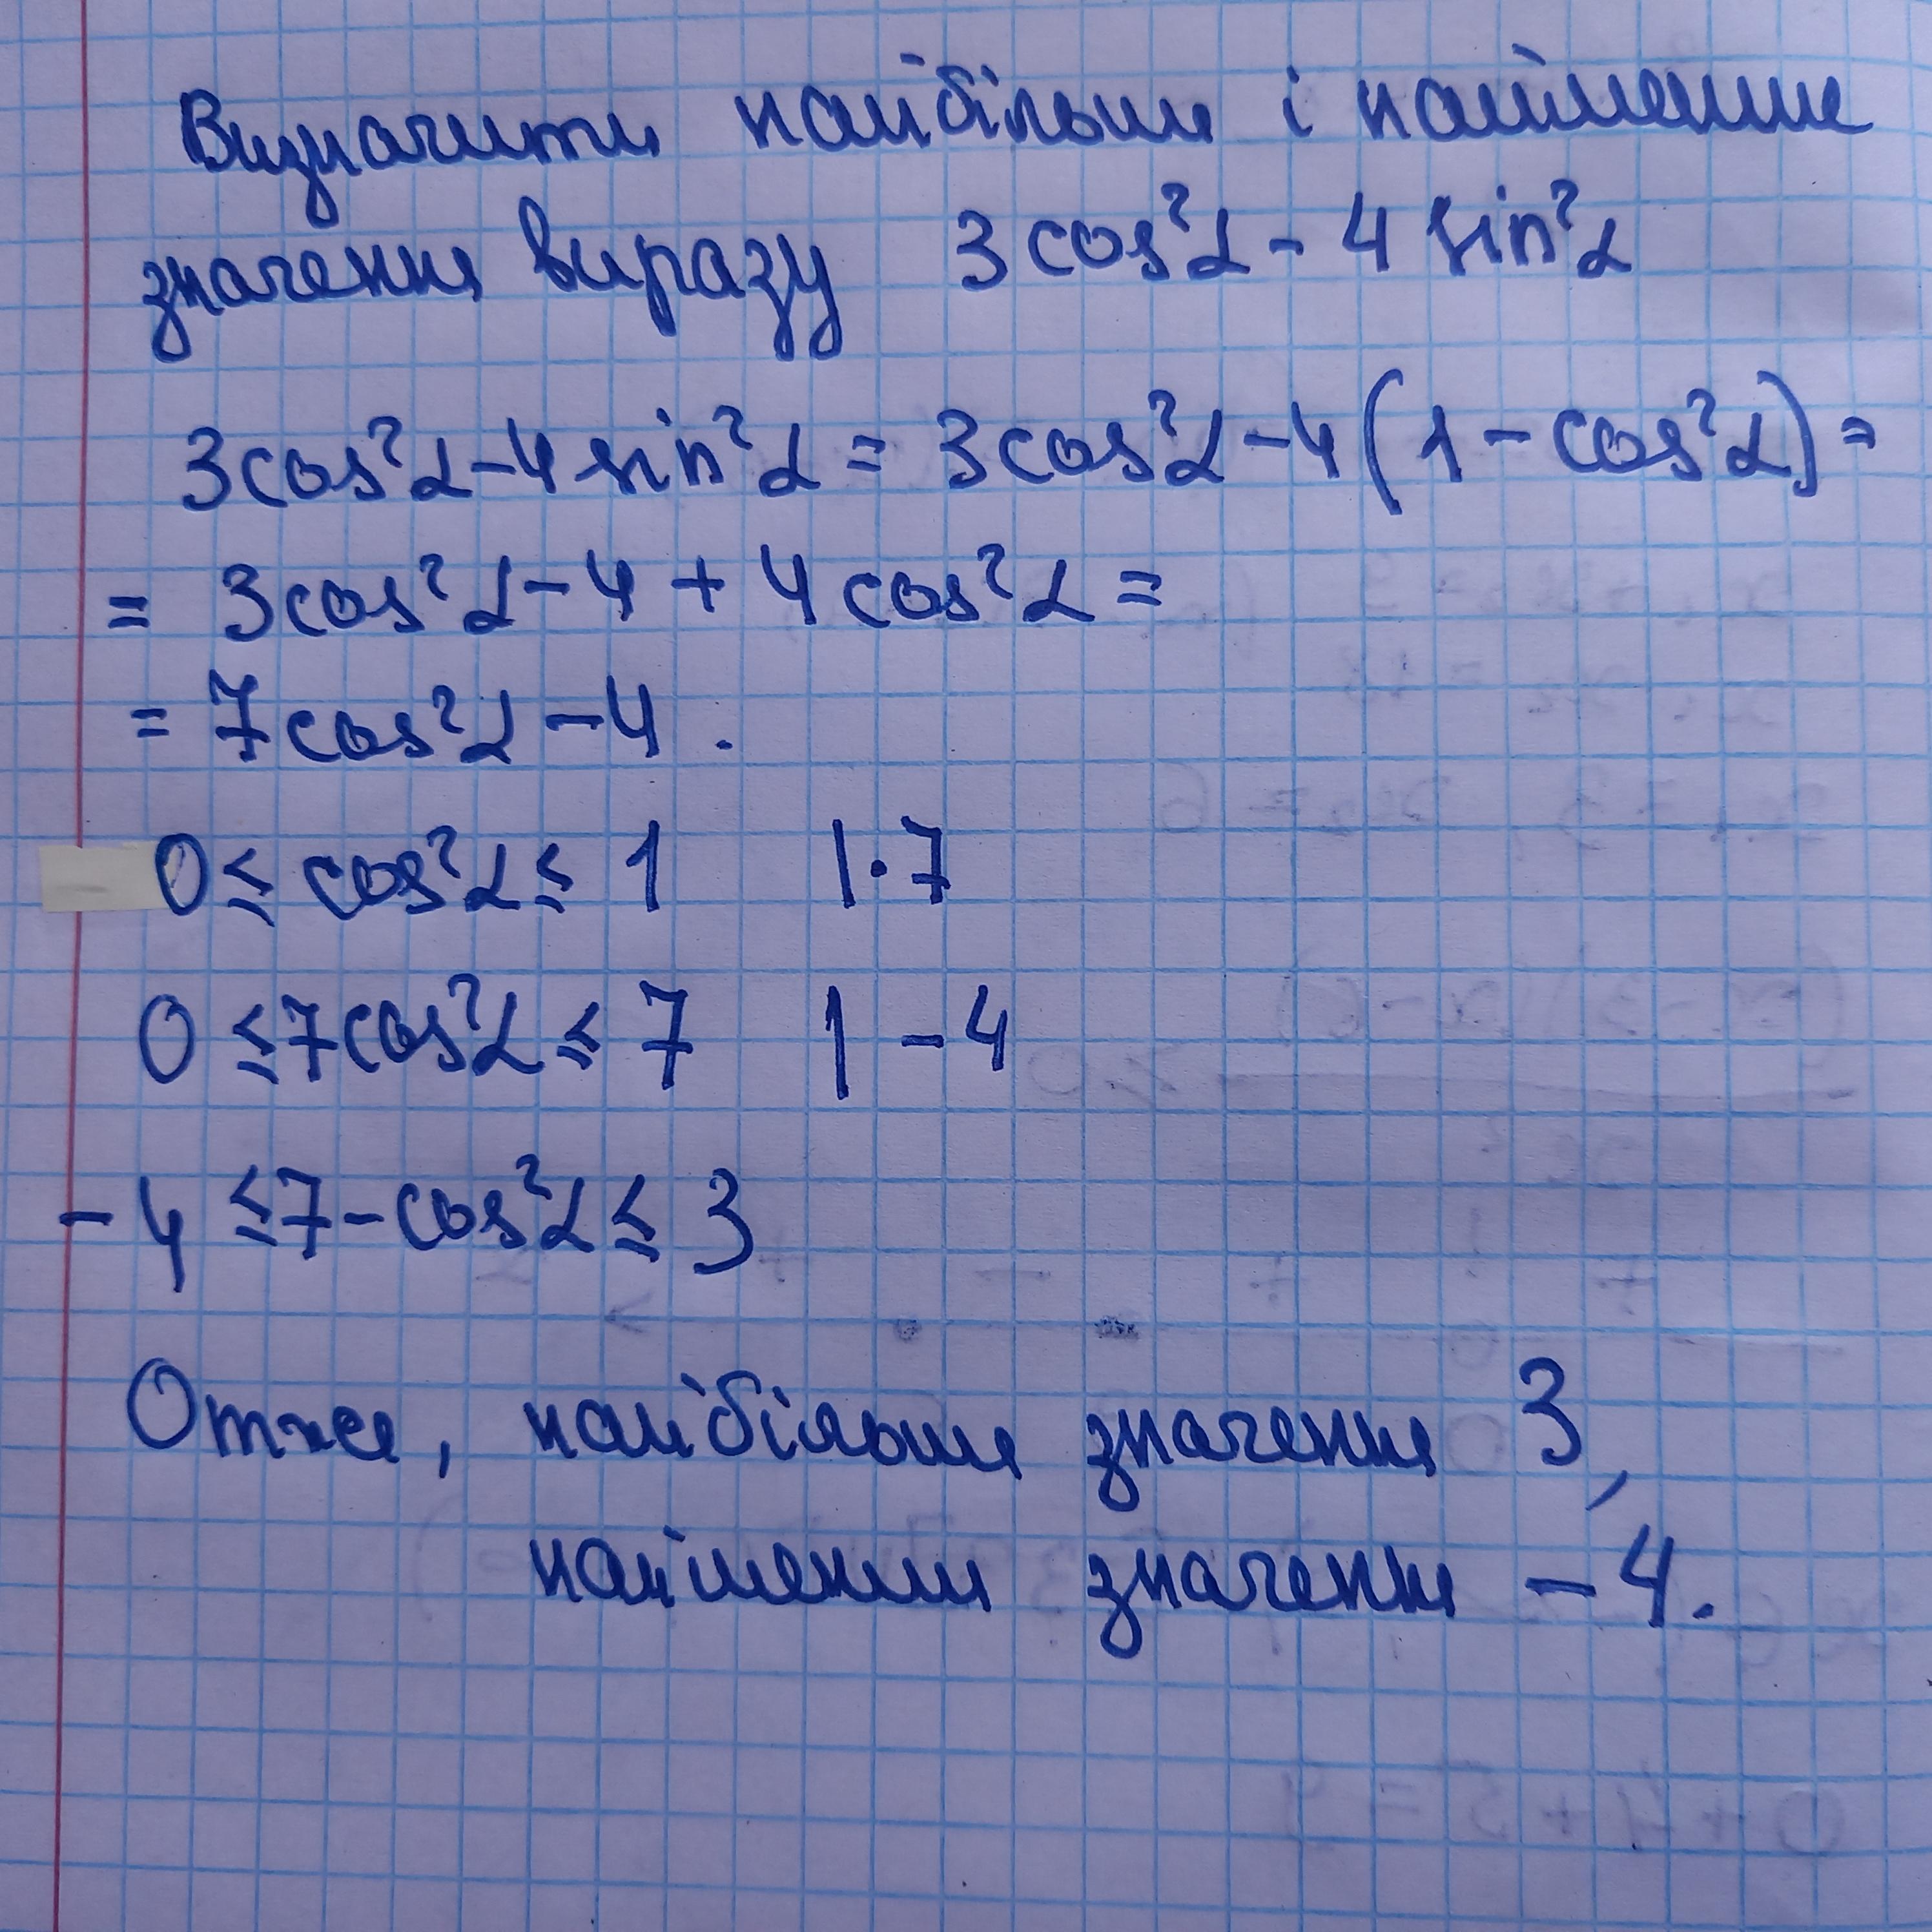 Визначити найбільше і найменше
значення виразу 3cos²α - 4 sin²α
3cos²α - 4 sin²α = 3cos²α - 4(1 - cos²α) =
= 3cos²α - 4 + 4cos²α =
= 7cos²α - 4.
0 ≤ cos²α ≤ 1 |·7
0 ≤ 7cos²α ≤ 7 | - 4
- 4 ≤ 7 - cos²α ≤ 3
Отже, найбільше значення 3,
найменше значення - 4.